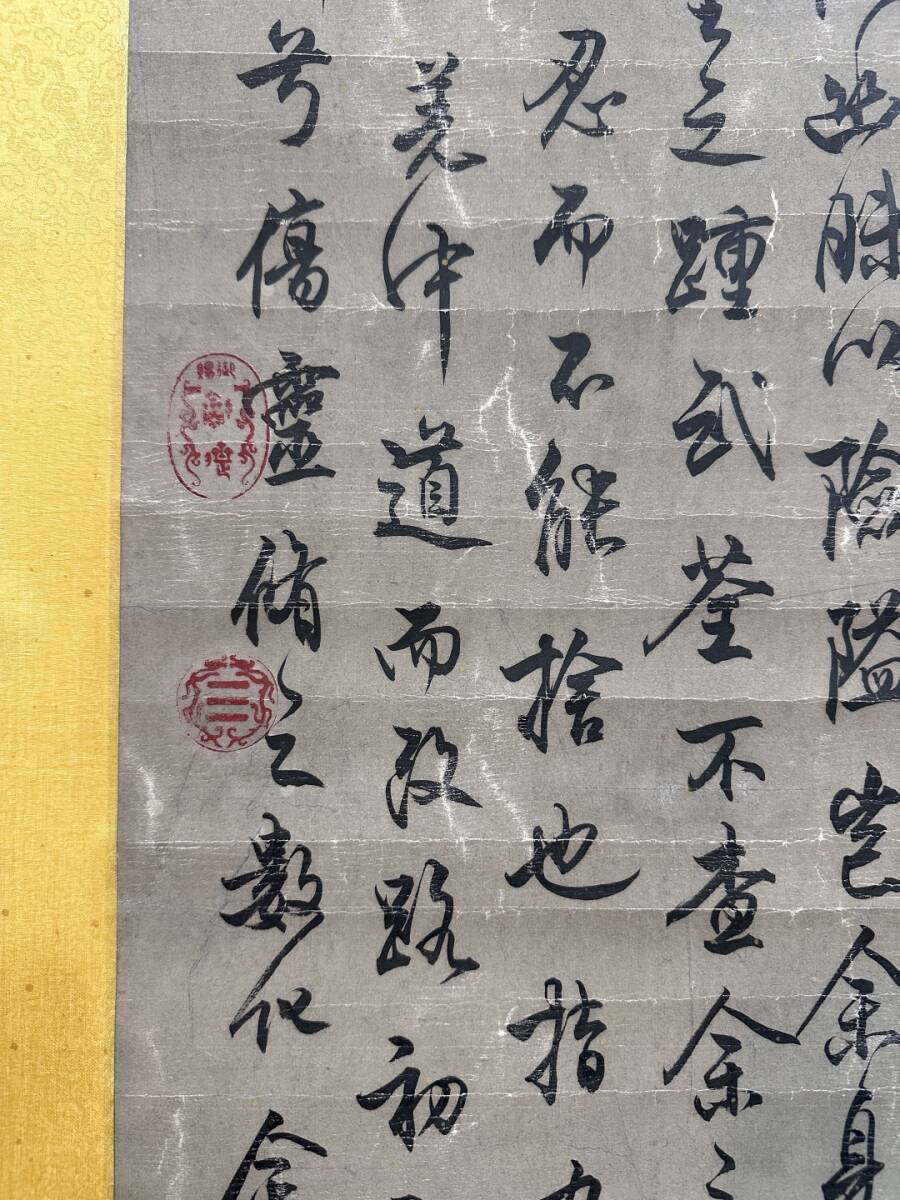 幽昧以險隘豈余身
王之踵武荃不查余之
忍而不能捨也指九
羌中道而改路初
兮傷靈脩之數化余
御賜
三